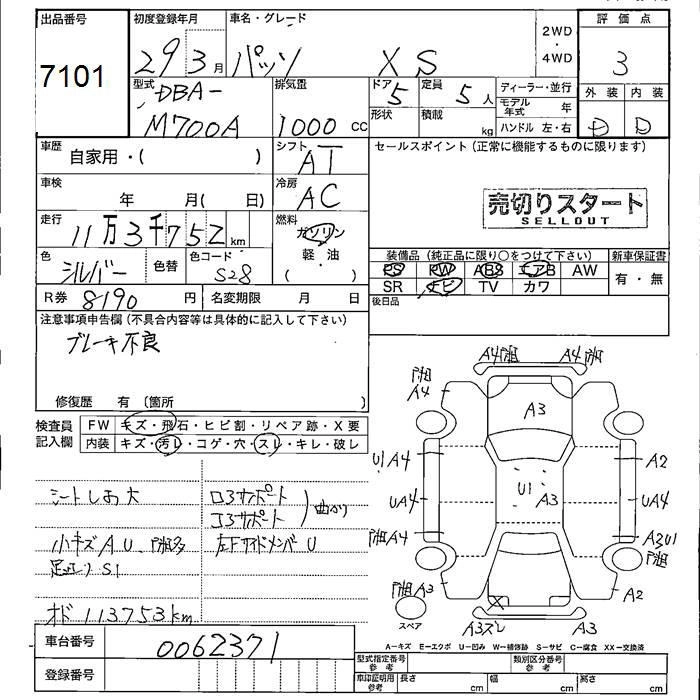 出品番号 初度登録年月 車名・グレード 2WD ・ 4WD 評価点
7101 29 3月 パッソ X S 3
型式 DBA- M700A 排気量 1000 cc ドア 5 定員 5人 形状 積載 kg
ディーラー・並行
モデル年式 年
ハンドル 左・右
外装 内装
D D
車歴 自家用・( ) シフト AT セールスポイント (正常に機能するものに限ります)
車検 年 月( 日) 冷房 AC
売切りスタート
SELLOUT
走行 11万3千752km 燃料 ガソリン 軽・油 ( )
色 シルバー 色替 色コード S28
装備品 (純正品に限り○をつけて下さい) 新車保証書
PS PW ABS エアB AW 有・無
SR ナビ TV カワ
R券 8190 円 名変期限 月 日 後日品
注意事項申告欄 (不具合内容等は具体的に記入して下さい)
ブレーキ不良
修復歴 有 (箇所 )
検査員記入欄 FW キズ・飛石・ヒビ割・リペア跡・X要
内装 キズ・汚レ・コゲ・穴・スレ・キレ・破レ
シートしお大 ロ3サポート
コ3サポート 曲がり
小キズAU 左Fサイドメンバ U
S1
オド 113753km
A4 A4
A4 A3
U1 A4 A2
U1 A3
UA4 UA4
A4 A3U1
A3 A2
X
A3ズレ A3
スペア
A−キズ E−エクボ U−凹み W−補修跡 S−サビ C−腐食 XX−交換済
車台番号 0062371 型式指定番号 参考 類別区分番号 参考
登録番号 車印証明用 参考 長さ cm 幅 cm 高さ cm